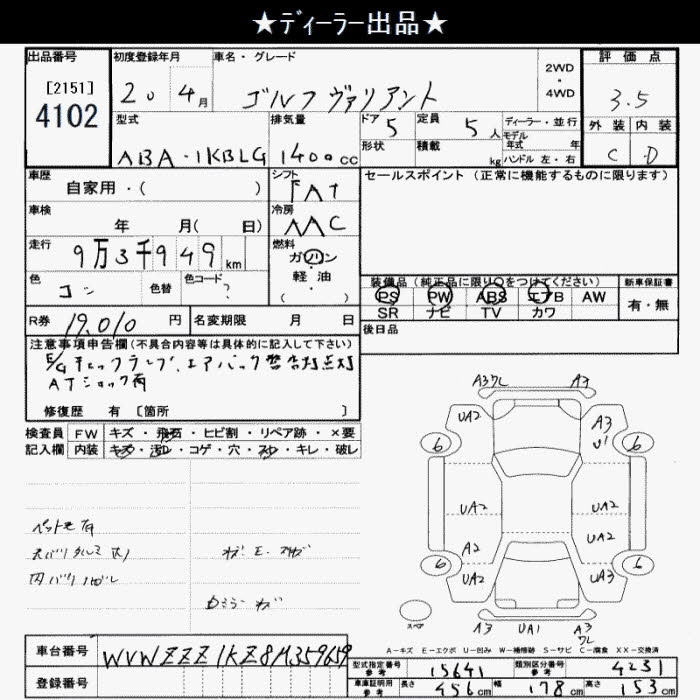 ★ディーラー出品★
出品番号 初度登録年月 車名・グレード 2WD・4WD 評価点
[2151]
4102
20 4月 ゴルフ ヴァリアント 3.5
型式 排気量 ドア 5 定員 5人 ディーラー・並行 外装 内装
モデル年式 年
ABA-1KBLG 1400cc 形状 積載 kg ハンドル 左・右 C D
車歴 シフト セールスポイント(正常に機能するものに限ります)
自家用・( ) FAT
車検 冷房
年 月( 日) AAC
走行 燃料
9万3千949km ガソリン・軽油
( )
色 色替 色コード 装備品(純正品に限り○をつけてください) 新車保証書
コン ? PS PW ABS エアB AW 有・無
SR ナビ TV カワ
R券 19,010円 名変期限 月 日 後日品
注意事項申告欄(不具合内容等は具体的に記入して下さい)
E/G チェックランプ、エアバック警告灯点灯
ATショック有
修復歴 有 [箇所 ]
検査員 FW キズ・飛石・ヒビ割・リペア跡・×要
記入欄 内装 キズ・汚れ・コゲ・穴・スレ・キレ・破レ
ペット毛有
内バリハガレ
A3ワレ A3
UA2 A3
U1
6 6
UA2 UA2
A2 UA2
6 6
UA2 UA3
スペア A3 UA1 A3
ワレ
A-キズ E-エクボ U-凹み W-補修跡 S-サビ C-腐食 XX-交換済
車台番号 WVWZZZ1KZ8M359659
登録番号
型式指定番号 参考 15641 類別区分番号 参考 4231
車庫証明用 参考 長さ 456cm 幅 178cm 高さ 153cm